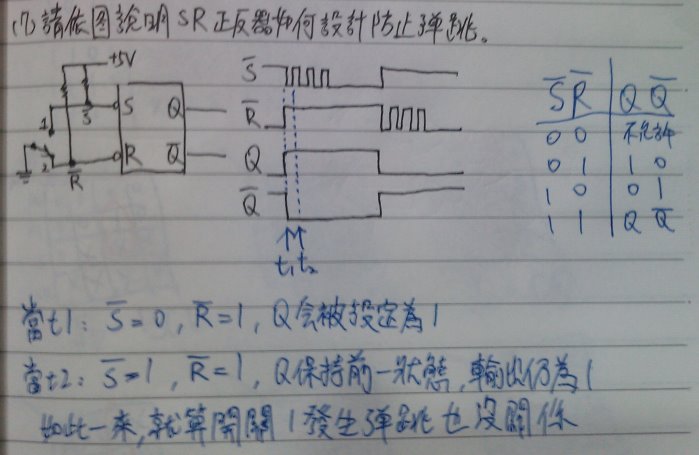 (7) 請依圖說明 SR 正反器如何設計防止彈跳。
+5V
S̅
R̅
1
2
S Q
R Q̅
S̅
R̅
S̅
R̅
Q
Q̅
t₁ t₂
S̅ R̅ Q Q̅
0 0 不允許
0 1 1 0
1 0 0 1
1 1 Q Q̅
當t1: S̅=0, R̅=1, Q会被設定為1
當t2: S̅=1, R̅=1, Q保持前一狀態,輸出仍為1
如此一來,就算開關1發生彈跳也沒關係